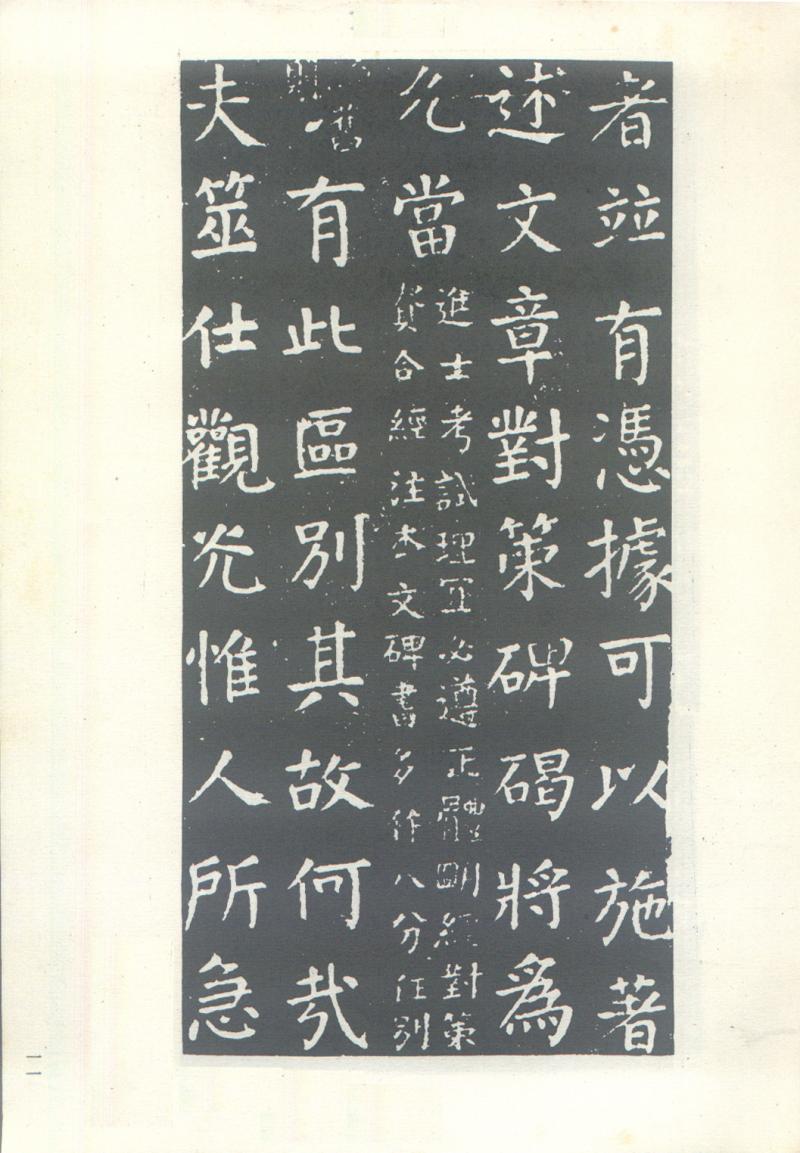 者並有憑據可以施著
述文章對策碑碣將為
允當
進士考試理宜必遵正體明經對策
貴合經注本文碑書多作八分任別
舊則
有此區別其故何哉
夫筮仕觀光惟人所急
二